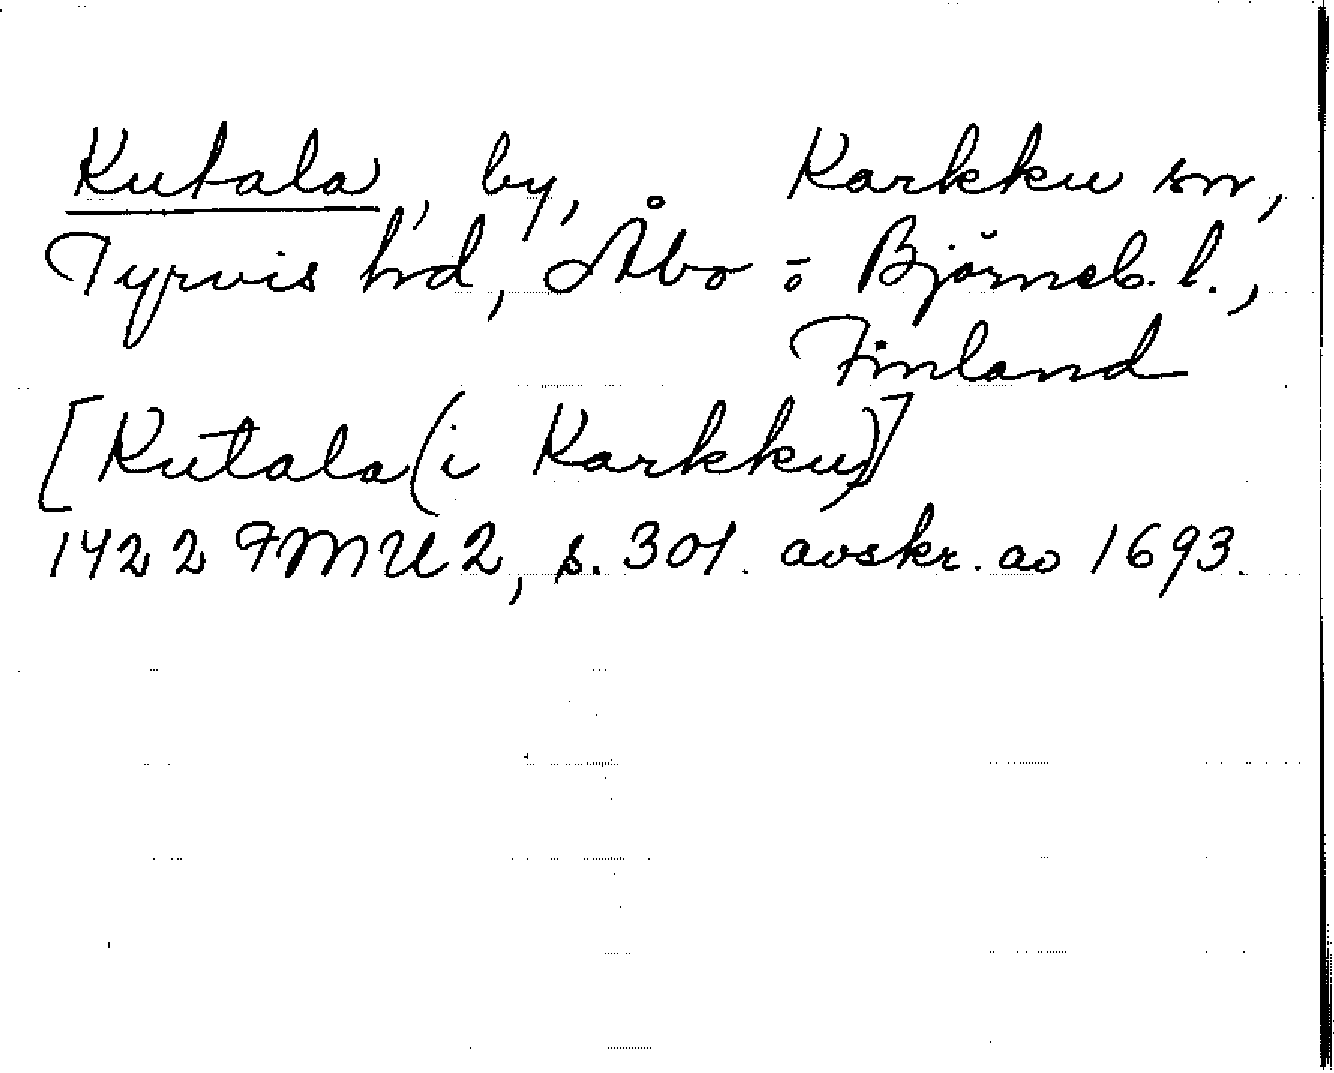 Kutala, by, Karkku sn,
Tyrvis hd, Åbo o Björneb. l.,
Finland
[Kutala (i Karkku)]
1422 FMU 2, s. 301. avskr. av 1693.